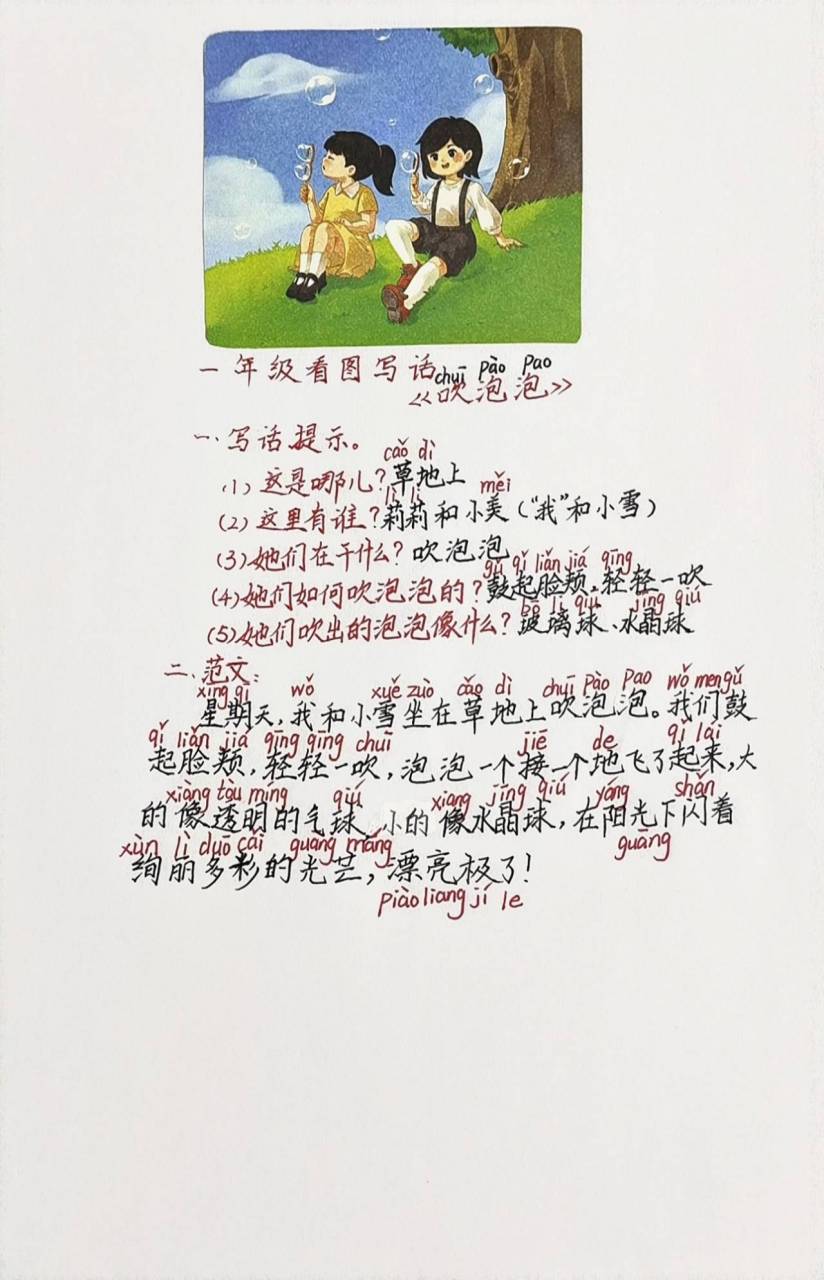 一年级看图写话
chuī pào pao
《吹泡泡》
一、写话提示。
cǎo dì
(1) 这是哪儿？草地上
lì li měi
(2) 这里有谁？莉莉和小美（“我”和小雪）
(3) 她们在干什么？吹泡泡
gǔ qǐ liǎn jiá qīng
(4) 她们如何吹泡泡的？鼓起脸颊，轻轻一吹
bō li qiú jīng qiú
(5) 她们吹出的泡泡像什么？玻璃球、水晶球
二、范文：
xīng qī wǒ xuě zuò cǎo dì chuī pào pao wǒ men gǔ
星期天，我和小雪坐在草地上吹泡泡。我们鼓
qǐ liǎn jiá qīng qīng chuī jiē de qǐ lái
起脸颊，轻轻一吹，泡泡一个接一个地飞了起来，大
xiàng tòu míng qiú xiang jīng qiú yáng shǎn
的像透明的气球，小的像水晶球，在阳光下闪着
xùn lì duō cǎi guang máng guāng
绚丽多彩的光芒，漂亮极了！
piào liang jí le